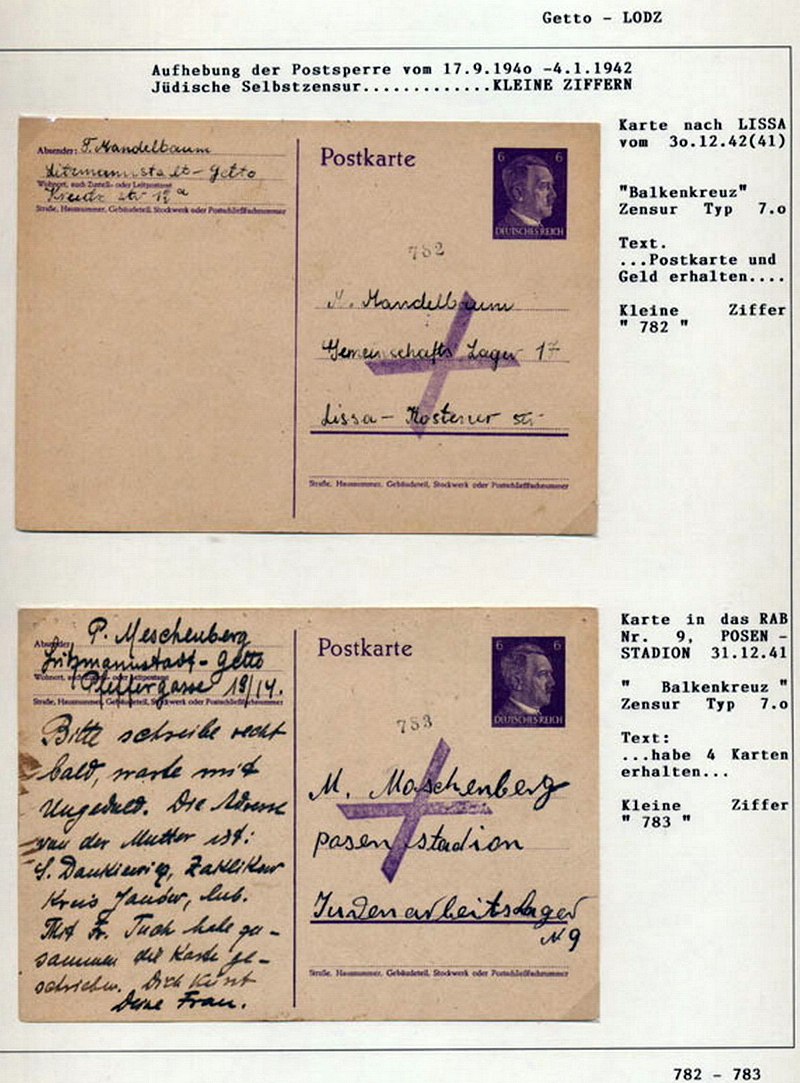 Getto - LODZ
Aufhebung der Postsperre vom 17.9.194o -4.1.1942
Jüdische Selbstzensur.............KLEINE ZIFFERN
Absender: T. Mandelbaum
Litzmannstadt - Getto
Wohnort, auch Zustell- oder Leitpostamt
Kreutz str 12a
Straße, Hausnummer, Gebäudeteil, Stockwerk oder Postschließfachnummer
Postkarte
6 6
DEUTSCHES REICH
782
Mandelbaum
Gemeinschafts Lager 17
Lissa - Kostener str
Straße, Hausnummer, Gebäudeteil, Stockwerk oder Postschließfachnummer
Karte nach LISSA
vom 3o.12.42(41)
"Balkenkreuz"
Zensur Typ 7.o
Text.
...Postkarte und
Geld erhalten....
Kleine Ziffer
" 782 "
Absender
P. Meschenberg
Litzmannstadt - Getto
Wohnort, auch Zustell- oder Leitpostamt
Pfeffergasse 19/14.
Straße, Hausnummer, Gebäudeteil, Stockwerk oder Postschließfachnummer
Bitte schreibe recht
bald, warte mit
Ungeduld. Die Adresse
von der Mutter ist:
S. Dankiewicz, Zaklikow
Kreis Janow, lub.
Mit Fr. Tuch habe zu-
sammen die Karte ge-
schrieben. Dich küsst
Deine Frau.
Postkarte
6 6
DEUTSCHES REICH
783
M. Maschenberg
posen stadion
Judenarbeitslager
N 9
Straße, Hausnummer, Gebäudeteil, Stockwerk oder Postschließfachnummer
Karte in das RAB
Nr. 9, POSEN -
STADION 31.12.41
" Balkenkreuz "
Zensur Typ 7.o
Text:
...habe 4 Karten
erhalten...
Kleine Ziffer
" 783 "
782 - 783